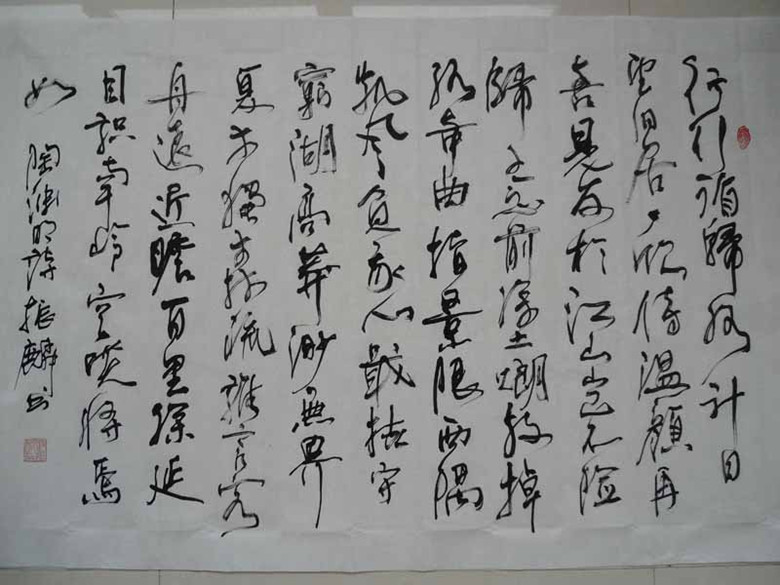 行行循歸路計日
望旧居一欣侍温顏再
喜見友於江山豈不險
歸子念前塗棹
路奇曲指景限西隅
凱風負我心戢枻守
窮湖高莽渺無界
夏木獨森疏誰言客
舟遠近瞻百里餘延
目識南嶺空嘆將焉
如
陶淵明詩振麟書